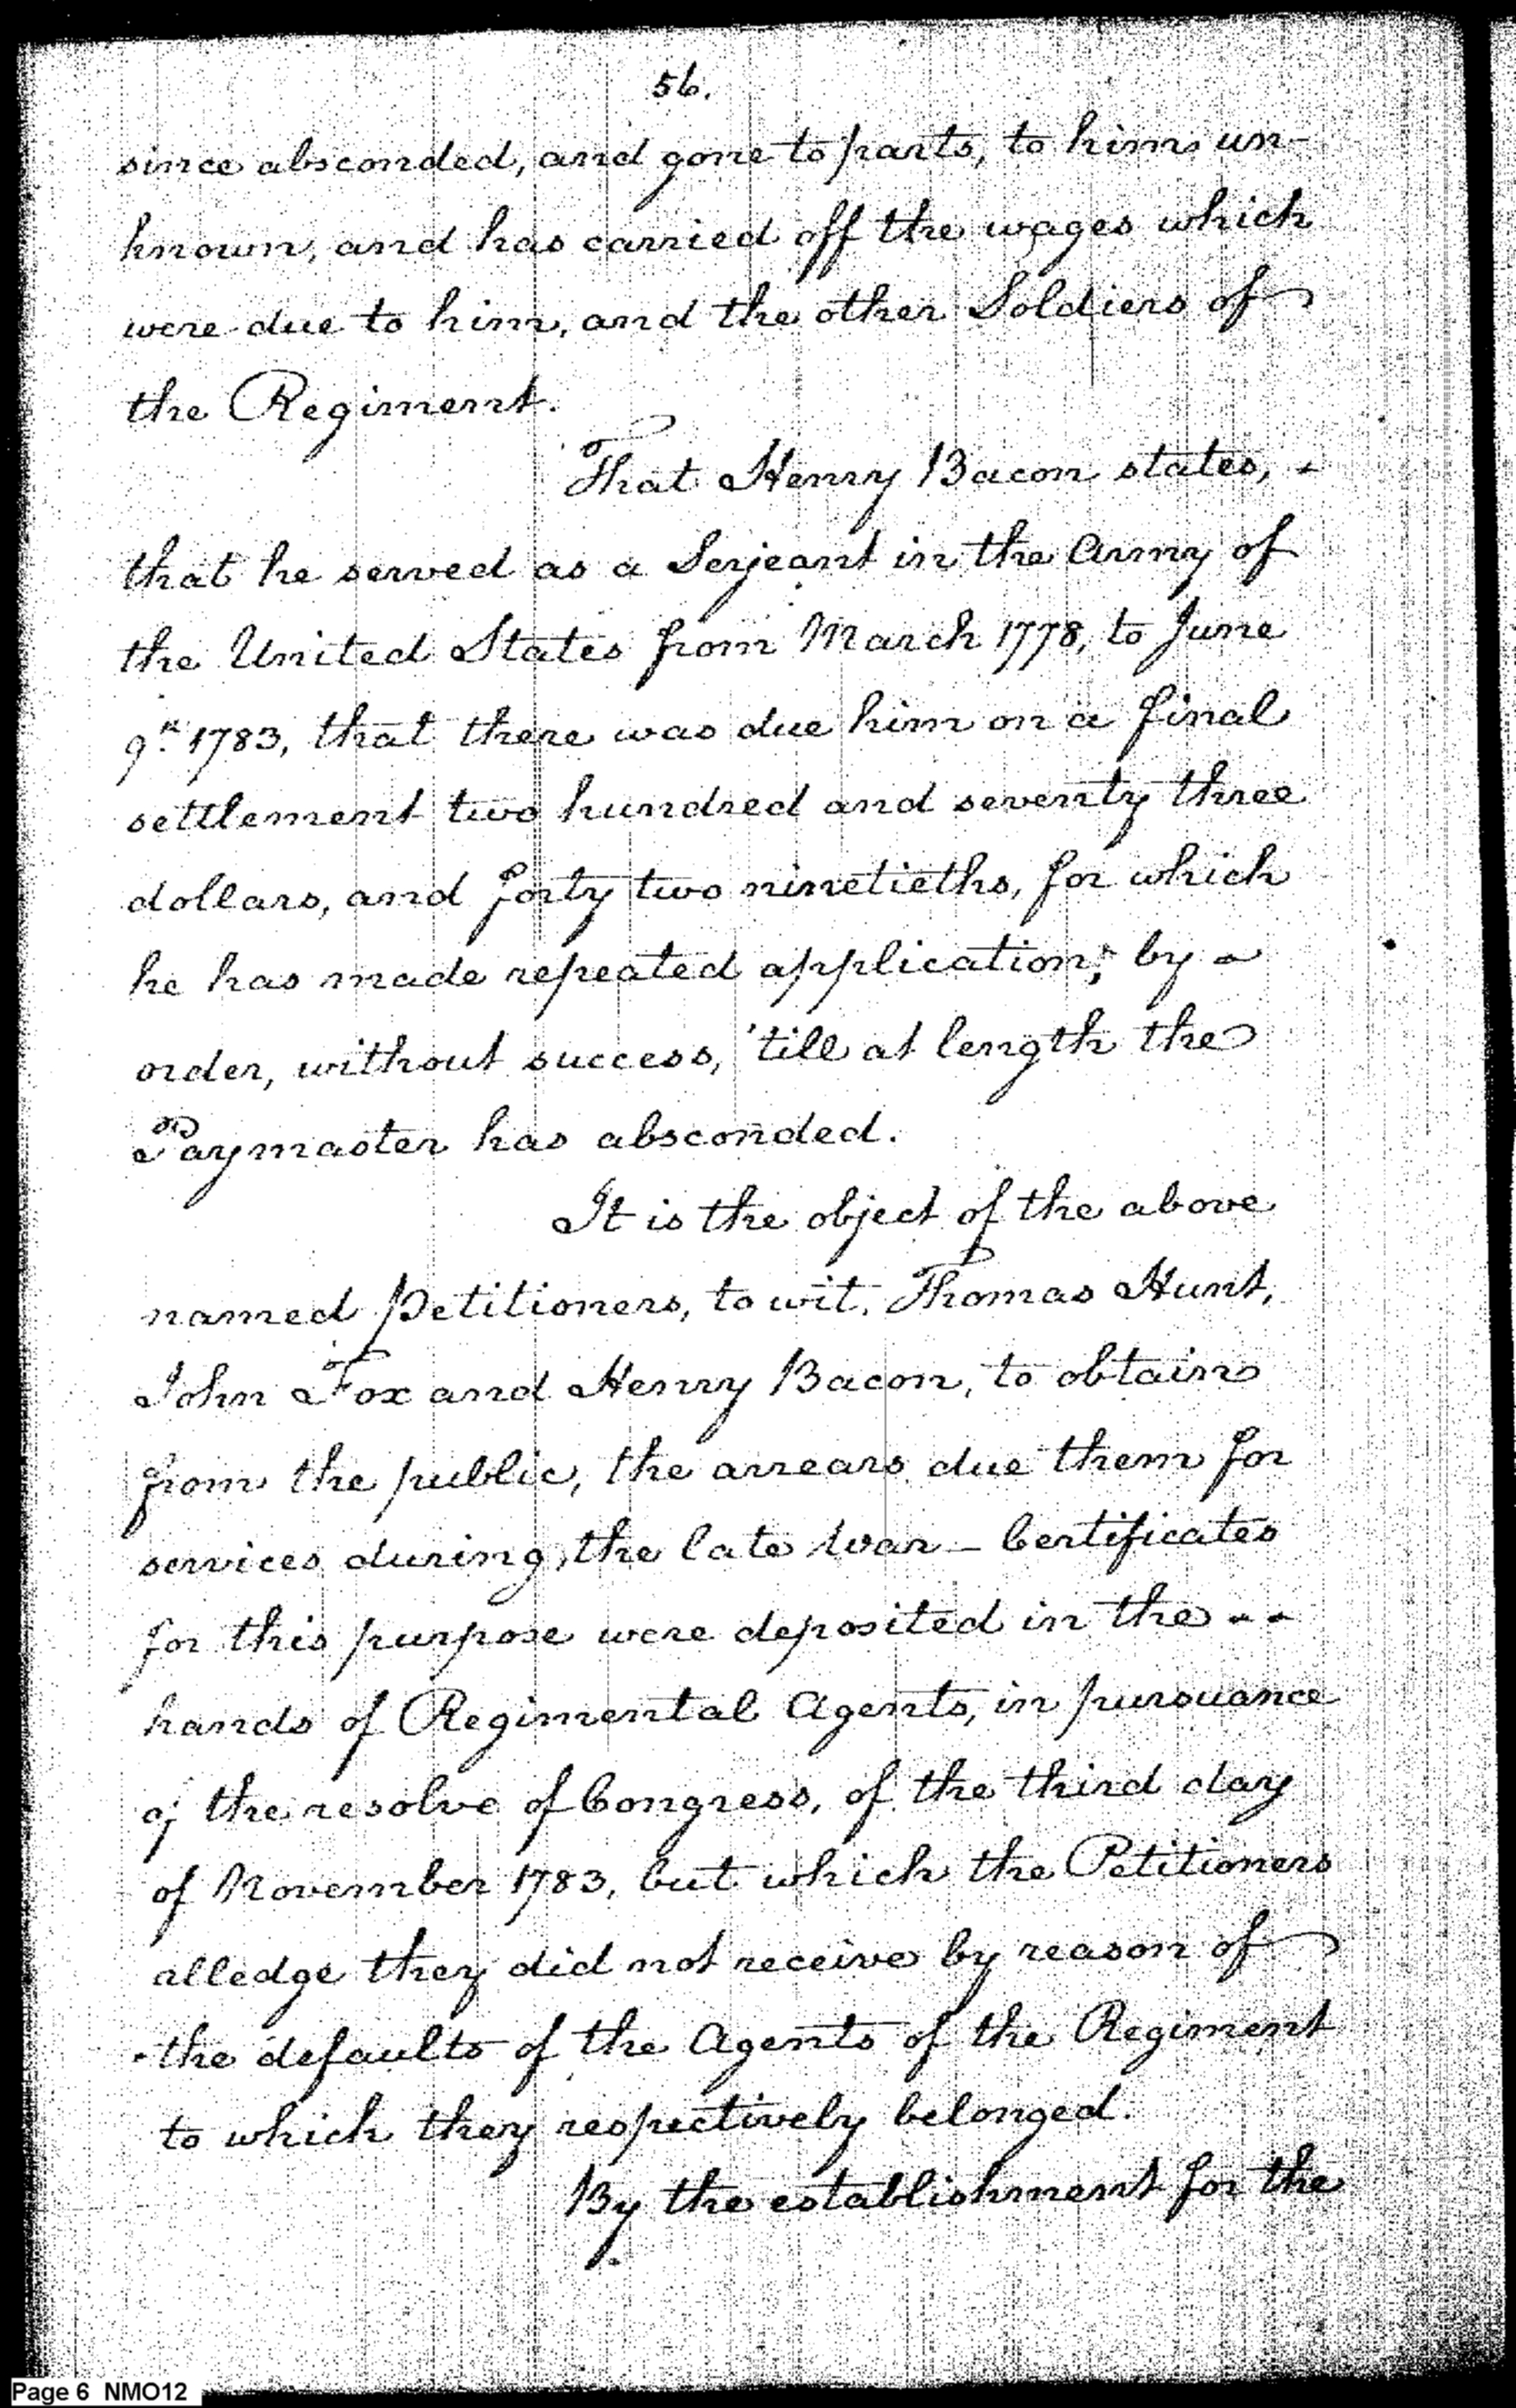 56.
since absconded, and gone to parts, to him un-
known, and has carried off the wages which
were due to him, and the other Soldiers of
the Regiment.
That Henry Bacon states, -
that he served as a Serjeant in the Army of
the United States from March 1778, to June
9th 1783, that there was due him on a final
settlement two hundred and seventy three
dollars, and forty two ninetieths, for which
he has made repeated application, by -
order, without success, 'till at length the
Paymaster has absconded.
It is the object of the above
named Petitioners, to wit, Thomas Hunt,
John Fox and Henry Bacon, to obtain
from the public, the arrears due them for
services during the late War - Certificates
for this purpose were deposited in the - -
hands of Regimental Agents, in pursuance
of the resolve of Congress, of the third day
of November 1783, but which the Petitioners
alledge they did not receive by reason of
the defaults of the Agents of the Regiment
to which they respectively belonged.
By the establishment for the
Page 6 NMO12